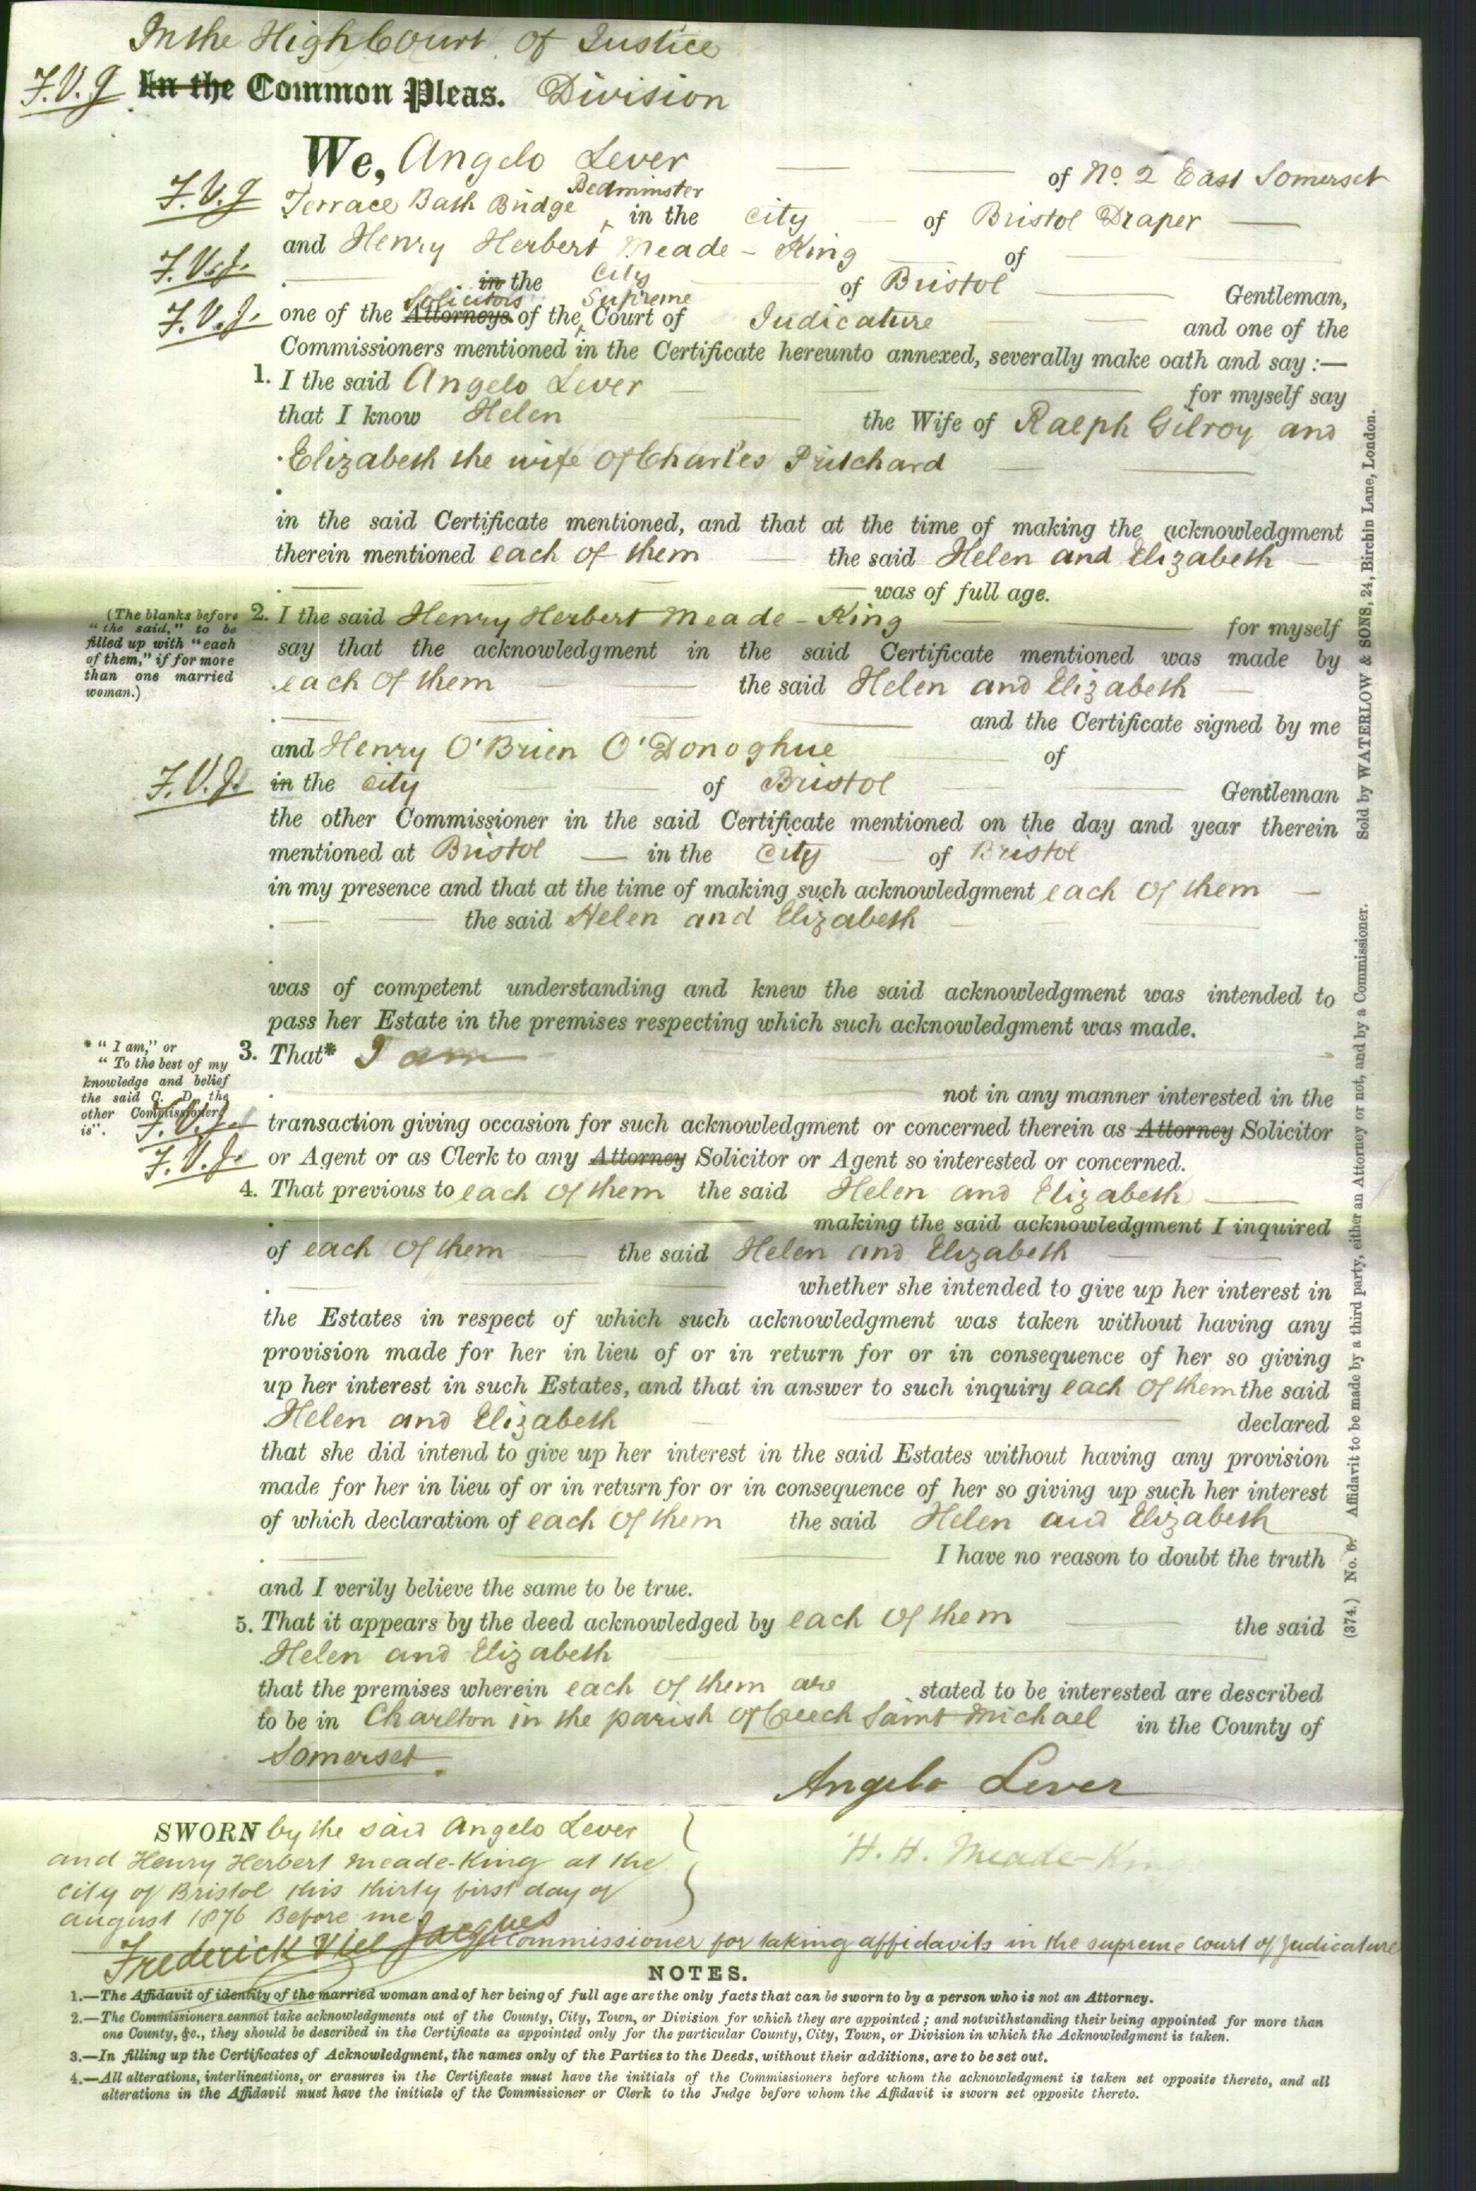 In the High Court of Justice
F.V.J. In the Common Pleas. Division
We, Angelo Lever of No. 2 East Somerset
F.V.J. Terrace Bath Bridge Bedminster in the city of Bristol Draper
and Henry Herbert Meade-King of
F.V.J. in the City of Bristol Gentleman,
F.V.J. one of the Attorneys Solicitors of the Supreme Court of Judicature and one of the
Commissioners mentioned in the Certificate hereunto annexed, severally make oath and say:—
1. I the said Angelo Lever for myself say
that I know Helen the Wife of Ralph Gilroy and
Elizabeth the wife of Charles Pritchard
in the said Certificate mentioned, and that at the time of making the acknowledgment
therein mentioned each of them the said Helen and Elizabeth
was of full age.
(The blanks before
"the said," to be
filled up with "each
of them," if for more
than one married
woman.)
2. I the said Henry Herbert Meade-King for myself
say that the acknowledgment in the said Certificate mentioned was made by
each of them the said Helen and Elizabeth
and the Certificate signed by me
and Henry O'Brien O'Donoghue of
F.V.J. in the city of Bristol Gentleman
the other Commissioner in the said Certificate mentioned on the day and year therein
mentioned at Bristol in the city of Bristol
in my presence and that at the time of making such acknowledgment each of them
the said Helen and Elizabeth
was of competent understanding and knew the said acknowledgment was intended to
pass her Estate in the premises respecting which such acknowledgment was made.
* "I am," or
"To the best of my
knowledge and belief
the said C. D. the
other Commissioner
is".
3. That* I am
not in any manner interested in the
F.V.J. transaction giving occasion for such acknowledgment or concerned therein as Attorney Solicitor
F.V.J. or Agent or as Clerk to any Attorney Solicitor or Agent so interested or concerned.
4. That previous to each of them the said Helen and Elizabeth
making the said acknowledgment I inquired
of each of them the said Helen and Elizabeth
whether she intended to give up her interest in
the Estates in respect of which such acknowledgment was taken without having any
provision made for her in lieu of or in return for or in consequence of her so giving
up her interest in such Estates, and that in answer to such inquiry each of them the said
Helen and Elizabeth declared
that she did intend to give up her interest in the said Estates without having any provision
made for her in lieu of or in return for or in consequence of her so giving up such her interest
of which declaration of each of them the said Helen and Elizabeth
I have no reason to doubt the truth
and I verily believe the same to be true.
5. That it appears by the deed acknowledged by each of them the said
Helen and Elizabeth
that the premises wherein each of them are stated to be interested are described
to be in Charlton in the parish of Creech Saint Michael in the County of
Somerset.
Angelo Lever
SWORN by the said Angelo Lever
and Henry Herbert Meade-King at the
city of Bristol this thirty first day of
august 1876 Before me,
H. H. Meade-King
Frederick Viel Jacques a Commissioner for taking affidavits in the supreme court of Judicature
NOTES.
1.—The Affidavit of identity of the married woman and of her being of full age are the only facts that can be sworn to by a person who is not an Attorney.
2.—The Commissioners cannot take acknowledgments out of the County, City, Town, or Division for which they are appointed; and notwithstanding their being appointed for more than
one County, &c., they should be described in the Certificate as appointed only for the particular County, City, Town, or Division in which the Acknowledgment is taken.
3.—In filling up the Certificates of Acknowledgment, the names only of the Parties to the Deeds, without their additions, are to be set out.
4.—All alterations, interlineations, or erasures in the Certificate must have the initials of the Commissioners before whom the acknowledgment is taken set opposite thereto, and all
alterations in the Affidavit must have the initials of the Commissioner or Clerk to the Judge before whom the Affidavit is sworn set opposite thereto.
(374.) No. 6. Affidavit to be made by a third party, either an Attorney or not, and by a Commissioner. Sold by WATERLOW & SONS, 24, Birchin Lane, London.